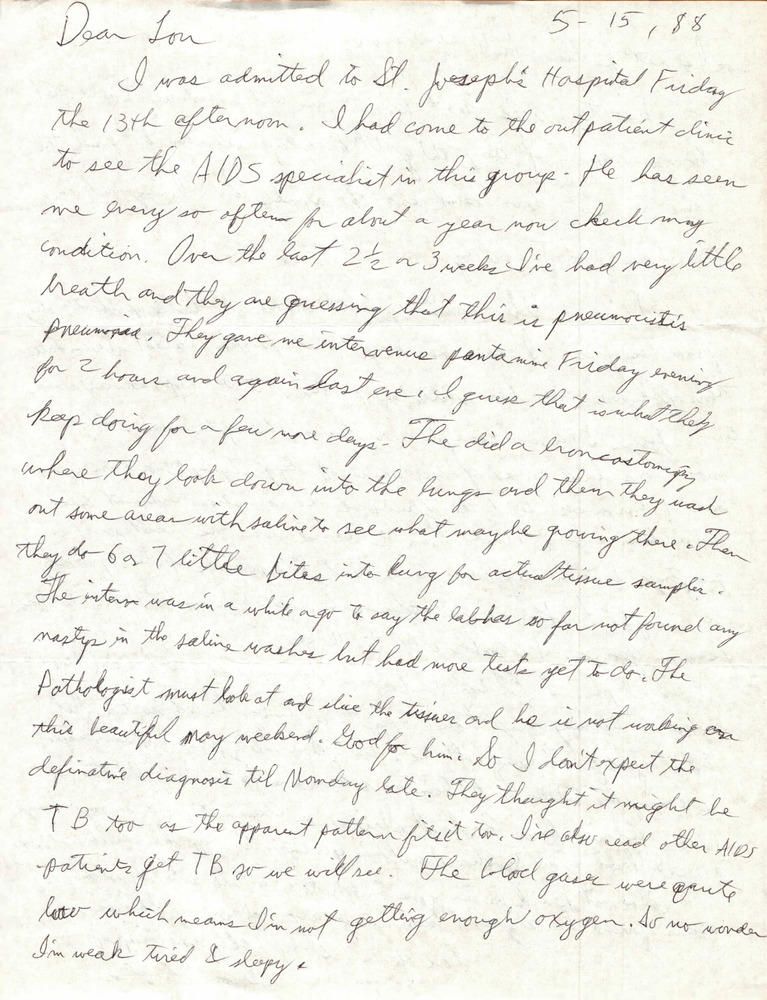 5-15, 88
Dear Lou
I was admitted to St. Joseph's Hospital Friday
the 13th afternoon. I had come to the outpatient clinic
to see the AIDS specialist in this group - He has seen
me every so often for about a year now check my
condition. Over the last 2½ or 3 weeks I've had very little
breath and they are guessing that this is pneumocistis
pneumonia. They gave me intervenus pentamine Friday evening
for 2 hours and again last eve. I guess that is what they
keep doing for a few more days - The did a broncostomepy
where they look down into the lungs and then they wash
out some areas with saline to see what maybe growing there. Then
they do 6 or 7 little bites into lung for actual tissue samples.
The intern was in a while ago to say the lab has so far not found any
nastys in the saline washes but had more tests yet to do. The
Pathologist must look at and slice the tissues and he is not working on
this beautiful May weekend. Good for him. So I don't expect the
definative diagnosis til Monday late. They thought it might be
TB too as the apparent pattern fits it too. I've also read other AIDS
patients get TB so we will see. The blood gases were quite
low which means I'm not getting enough oxygen. So no wonder
I'm weak tired & sleepy.